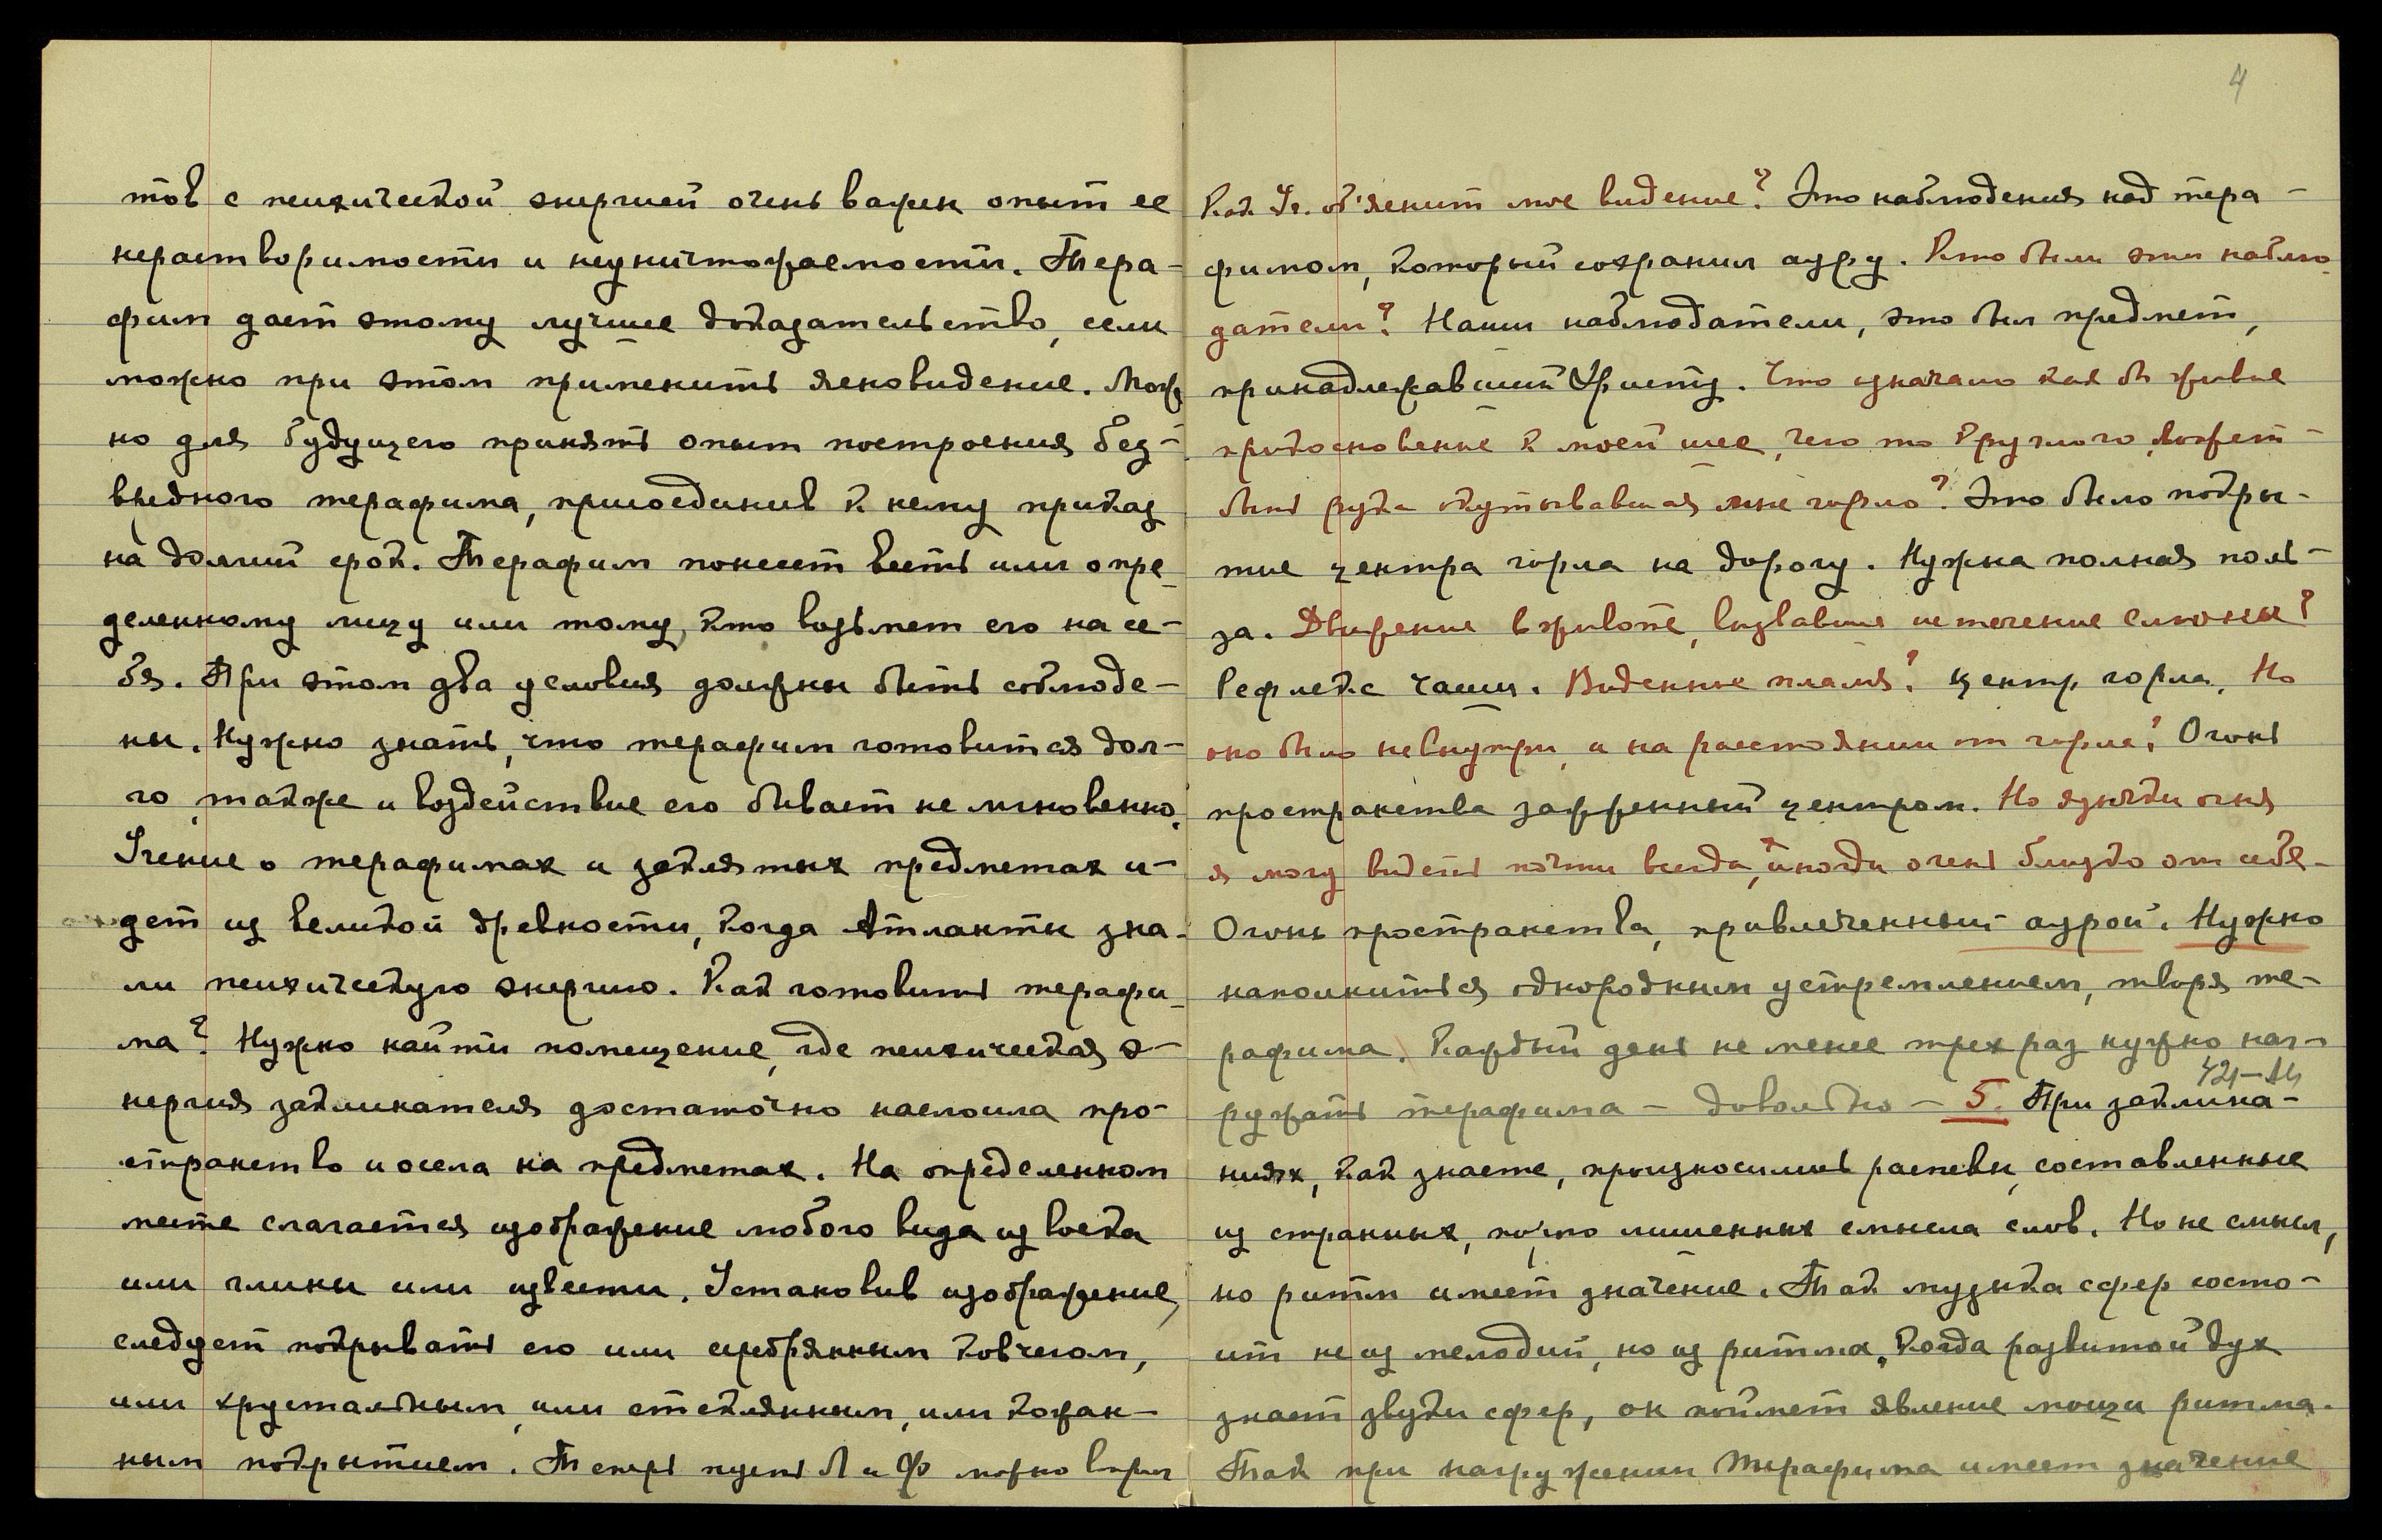 тов с психической энергией очень важен опыт ее
нерастворимости и неуничтожаемости. Тера-
фим дает этому лучшее доказательство, если
можно при этом применить ясновидение. Мож
но для будущего принять опыт построения без-
вредного терафима, присоединив к нему приказ
на долгий срок. Терафим понесет весть или опре-
деленному лицу или тому, кто возьмет его на се-
бя. При этом два условия должны быть соблюде-
ны. Нужно знать, что терафим готовится дол-
го, также и воздействие его бывает не мгновенно.
Учение о терафимах и заклятых предметах и-
дет из великой древности, когда Атланты зна-
ли психическую энергию. Как готовить терафи-
ма? Нужно найти помещение, где психическая э-
нергия заклинателя достаточно наслоила про-
странство и осела на предметах. На определенном
месте слагается изображение любого вида из воска
или глины или извести. Установив изображение,
следует покрывать его или серебрянным ковчегом,
или хрустальным, или стеклянным, или кожан-
ным покрытием. Теперь пусть Л и Ф можно
4
Как Уч. об'яснит мое видение? Это наблюдения над тера-
фимом, который сохранил ауру. Кто были эти наблю-
датели? Наши наблюдатели, это был предмет,
принадлежавший Христу. Что означало как бы живое
прикосновение к моей шее, чего то круглого, может
быть рука окутывавшая мне горло? Это было покры-
тие центра горла на дорогу. Нужна полная поль-
за. Движение в животе, вызвавшее истечение слюны?
Рефлекс чаши. Виденное пламя? Центр горла. Но
оно было не внутри, а на расстоянии от горла? Огонь
пространства зажженный центром. Но язычки огня
я могу видеть почти всегда, и иногда очень близко от себя.
Огонь пространства, привлеченный аурой. Нужно
наполниться однородным устремлением, творя те-
рафима. Каждый день не менее трех раз нужно наг-
ружать терафима - довольно - 5. При заклина-
421-АЙ
ниях, как знаете, произносились распевы, составленные
из странных, почто лишенных смысла слов. Но не смысл,
но ритм имеет значение. Так музыка сфер состо-
ит не из мелодий, но из ритма. Когда развитой дух
знает звуки сфер, он поймет явление мощи ритма.
Так при нагружении терафима имеет значение